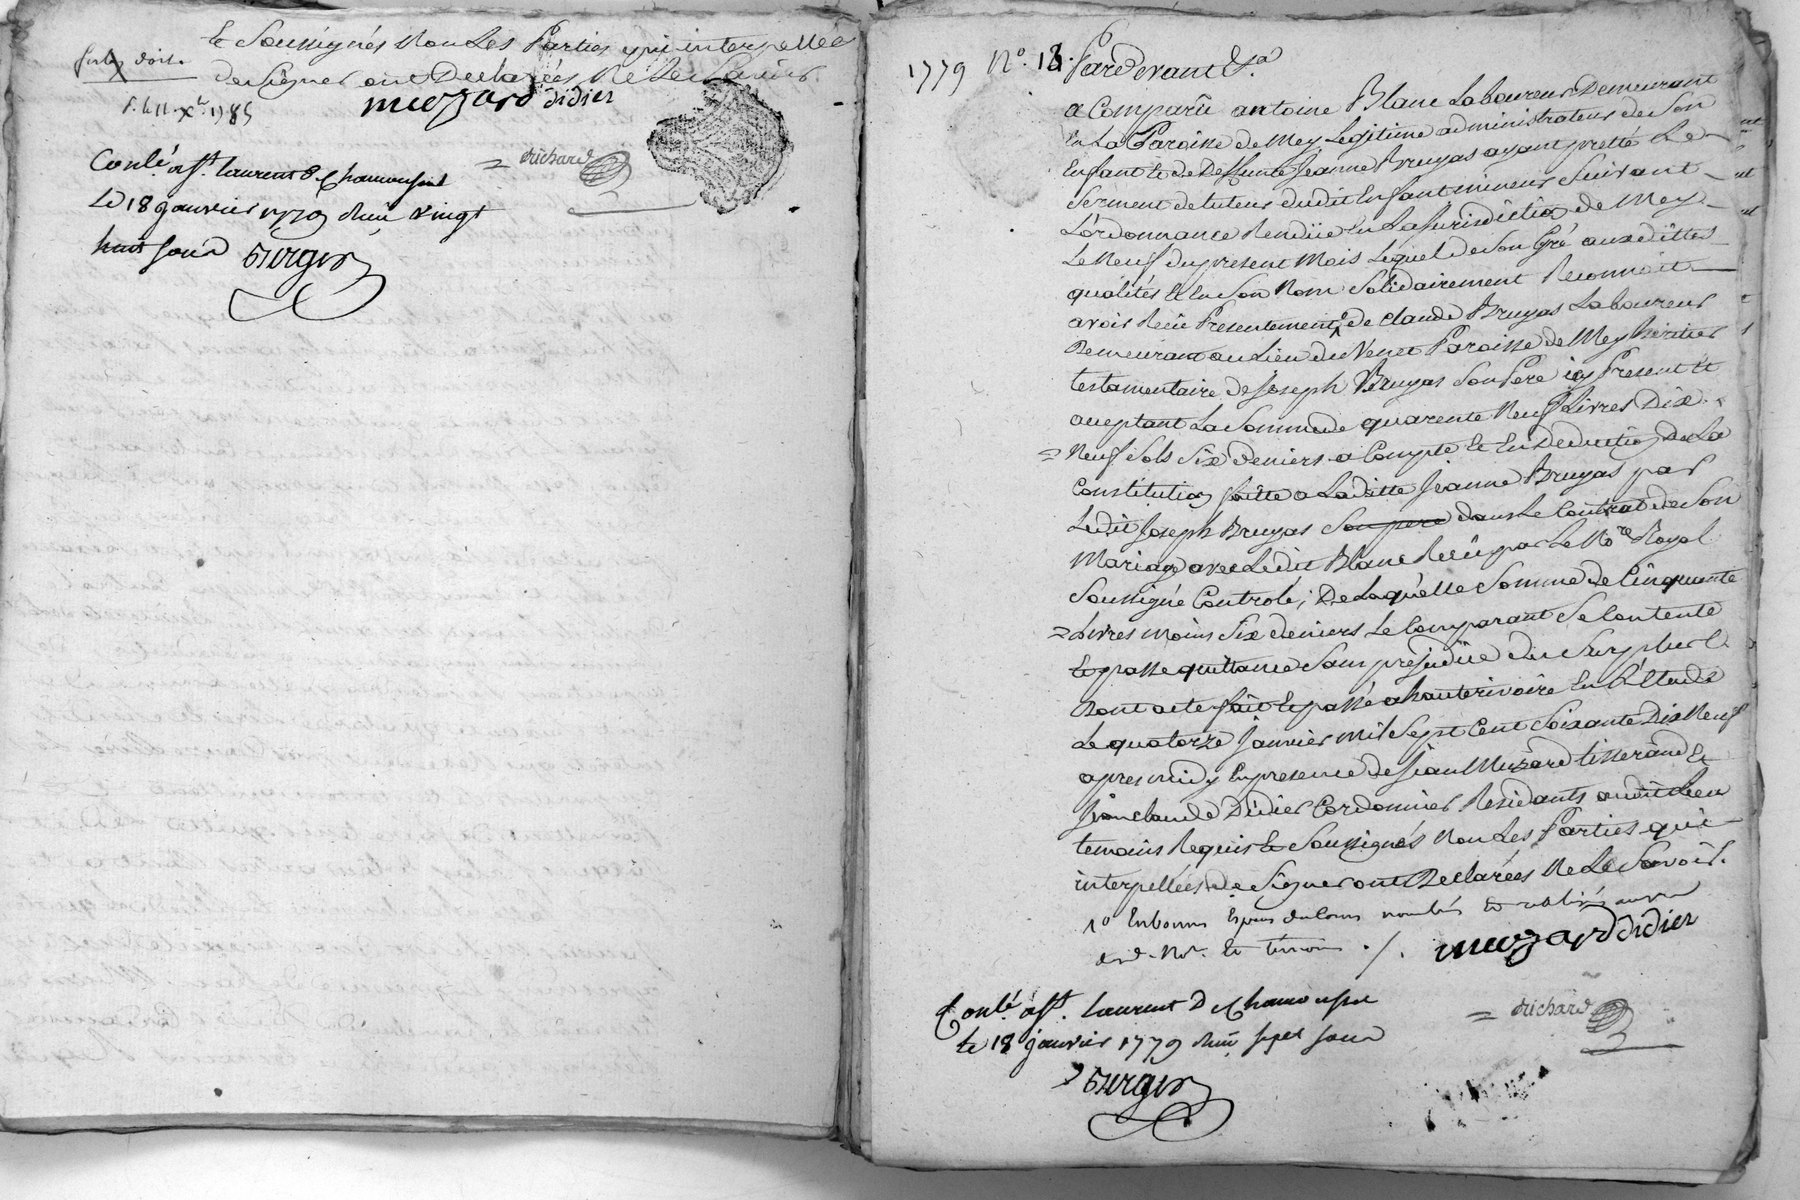 et Soussignés Non Les Parties qui interpellées
de Signer ont Declarées Ne le Scavoir.
muzard didier
richard
Conlé. à st. laurent de Chamousset
Le 18 janvier 1779 Reçu vingt
huit sous
1779 Nº. 18. Pardevant &a
a Comparû antoine Blanc Laboureur Demeurant
En La Paroisse de Mey Legitime administrateur de Son
Enfant et de Deffunte Jeanne Bruyas ayant pretté Le
Serment de tuteur dudit Enfant mineur Suivant
L'ordonnance Rendüe En La Jurisdiction de Mey
Le Neuf du present Mois Lequel de Son Gré auxdittes
qualités Et En Son Nom Solidairement Reconnoit
avoir Reçû Presentement de Claude Bruyas Laboureur
Demeurant au Lieu du Venet Paroisse de Mey heritier
testamentaire de Joseph Bruyas Son Pere icy Present et
aceptant La Somme de quarente Neuf Livres Dix
Neuf Sols Six deniers a Compte Et En Deduction De La
Constitution faitte a Laditte Jeanne Bruyas par
Ledit Joseph Bruyas Son pere dans Le Contrat de Son
Mariage avec Ledit Blanc Reçû par Le Nore. Royal
Soussigné Controlé; De Laquelle Somme de Cinquante
Livres moins Six deniers Le Comparant Se Contente
Et passe quittance Sans prejudice du Surplus
Dont acte fait Et passé a hauterivoire En L'Etude
Le quatorze Janvier mil Sept Cent Soixante Dix Neuf
apres midy En presence de Jean Muzard tisserand Et
Jean claude Didier Cordonnier Residants audit Lieu
temoins Requis Et Soussignés Non Les Parties qui
interpellées de Signer ont Declarées Ne Le Savoir.
muzard didier
richard
Conlé. à st. laurent de Chamousset
le 18 janvier 1779 Reçu sept sous